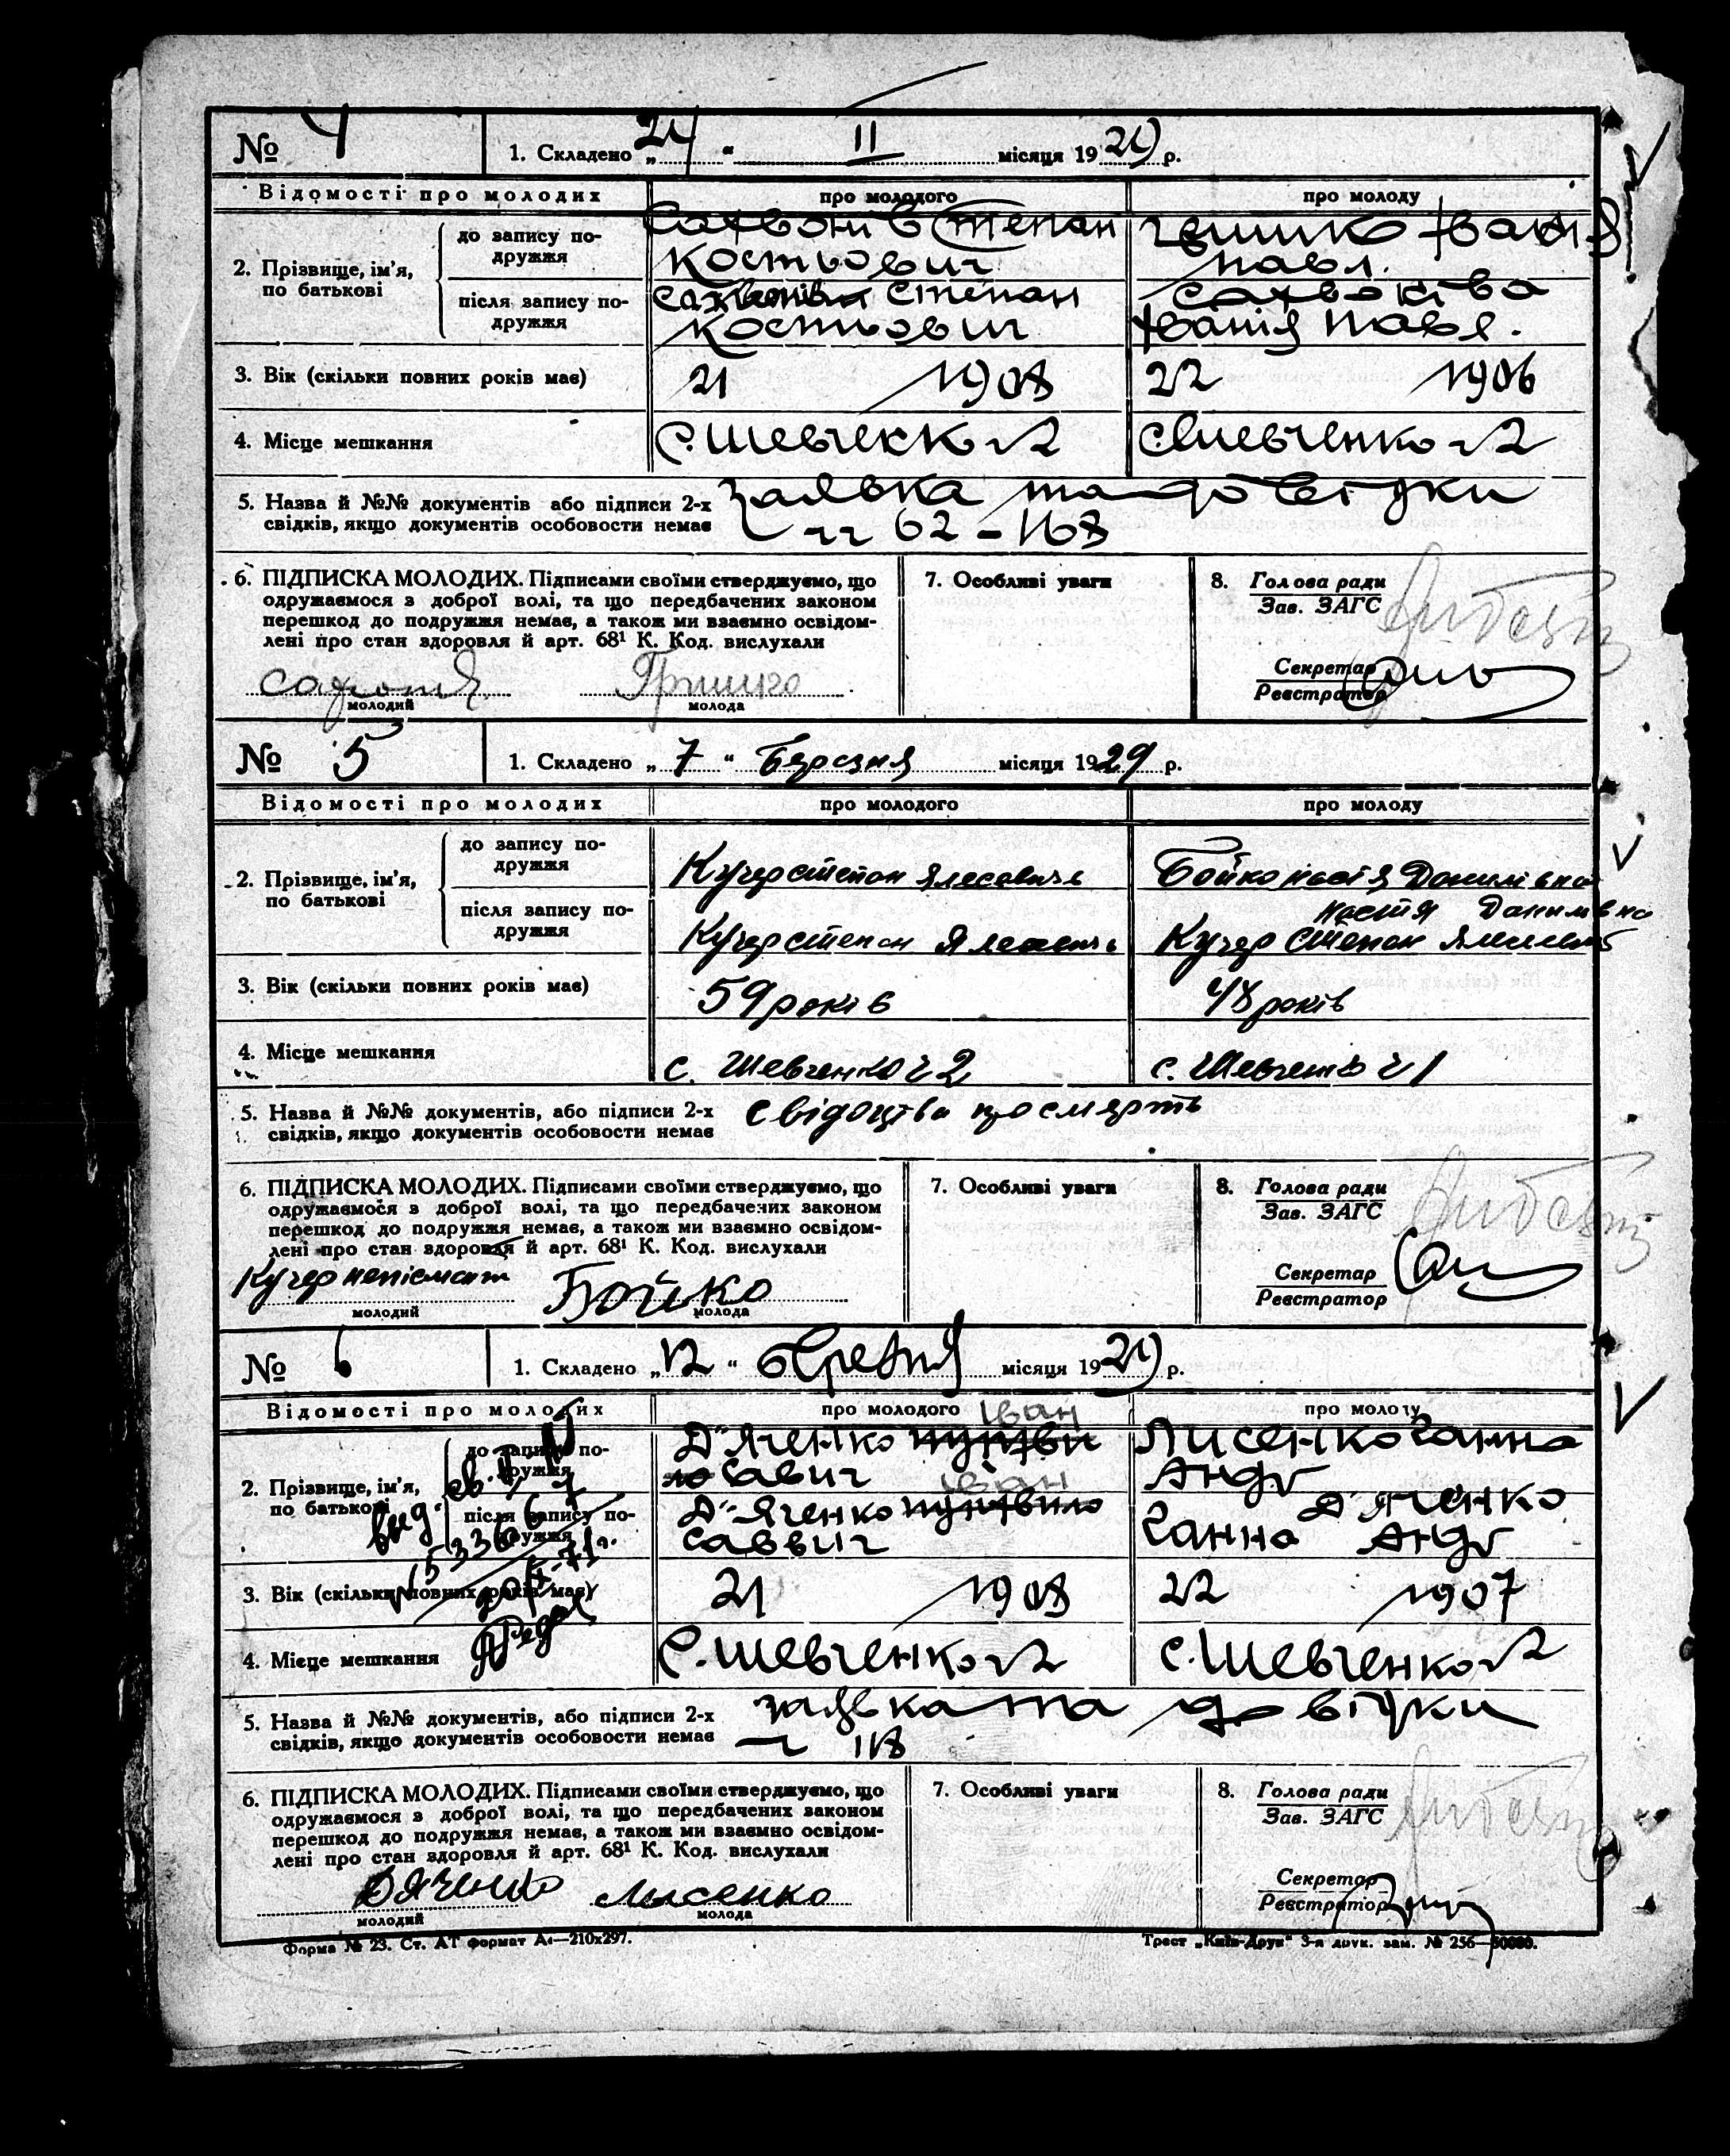 № 4 1. Складено „24“ II місяця 1929 р.
Відомості про молодих про молодого про молоду
2. Прізвище, ім'я, по батькові
до запису подружжя
Степан
Костьович
Павл.
після запису подружжя
Степан
Костьович
Павл.
3. Вік (скільки повних років має) 21 1908 22 1906
4. Місце мешкання с. Шевченко 2 с. Шевченко 2
5. Назва й №№ документів або підписи 2-х заявка та довідки
свідків, якщо документів особовости немає 62 – 168
6. ПІДПИСКА МОЛОДИХ. Підписами своїми стверджуємо, що
одружаємося з доброї волі, та що передбачених законом
перешкод до подружжя немає, а також ми взаємно освідом-
лені про стан здоровля й арт. 68¹ К. Код. вислухали
молодий молода
7. Особливі уваги
8. Голова ради
Зав. ЗАГС
Секретар
Реєстратор
№ 5 1. Складено „7“ Березня місяця 1929 р.
Відомості про молодих про молодого про молоду
2. Прізвище, ім'я, по батькові
до запису по-
дружжя
Кучер Степан Бойко Настя Данилівна
після запису по-
дружжя
Настя Данилівна
Кучер Степан Кучер Степан
3. Вік (скільки повних років має) 59 років 48 років
4. Місце мешкання с. Шевченко ч 2 с. Шевченко ч 1
5. Назва й №№ документів, або підписи 2-х свідоцтва про смерть
свідків, якщо документів особовости немає
6. ПІДПИСКА МОЛОДИХ. Підписами своїми стверджуємо, що
одружаємося з доброї волі, та що передбачених законом
перешкод до подружжя немає, а також ми взаємно освідом-
лені про стан здоровля й арт. 68¹ К. Код. вислухали
Кучер неписмен Бойко
молодий молода
7. Особливі уваги
8. Голова ради
Зав. ЗАГС
Секретар
Реєстратор
№ 6 1. Складено „12“ березня місяця 1929 р.
Відомості про молодих про молодого про молоду
2. Прізвище, ім'я, по батькові
до запису по-
дружжя
Іван
Д'Яченко Лисенко Ганна
Савич Андр
після запису по-
дружжя
Іван
Д'Яченко Д'Яченко
Саввич Ганна Андр
3. Вік (скільки повних років має) 21 1908 22 1907
4. Місце мешкання с. Шевченко 2 с. Шевченко 2
5. Назва й №№ документів, або підписи 2-х заявка та довідки
свідків, якщо документів особовости немає 118
6. ПІДПИСКА МОЛОДИХ. Підписами своїми стверджуємо, що
одружаємося з доброї волі, та що передбачених законом
перешкод до подружжя немає, а також ми взаємно освідом-
лені про стан здоровля й арт. 68¹ К. Код. вислухали
Дяченко Лисенко
молодий молода
7. Особливі уваги
8. Голова ради
Зав. ЗАГС
Секретар
Реєстратор
Форма № 23. Ст. АТ формат А4—210х297. Трест „Київ-Друк“ 3-я друк. зам. № 256—50000.